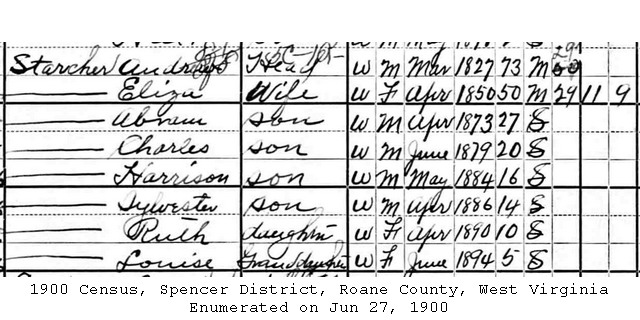 Starcher Andrew Head W M Mar 1827 73 M 29
Eliza Wife W F Apr 1850 50 M 29 11 9
Abram son W M Apr 1873 27 S
Charles son W M June 1879 20 S
Harrison son W M May 1884 16 S
Sylvester son W M Apr 1886 14 S
Ruth daughter W F Apr 1890 10 S
Louise Granddaughter W F June 1894 5 S
1900 Census, Spencer District, Roane County, West Virginia
Enumerated on Jun 27, 1900